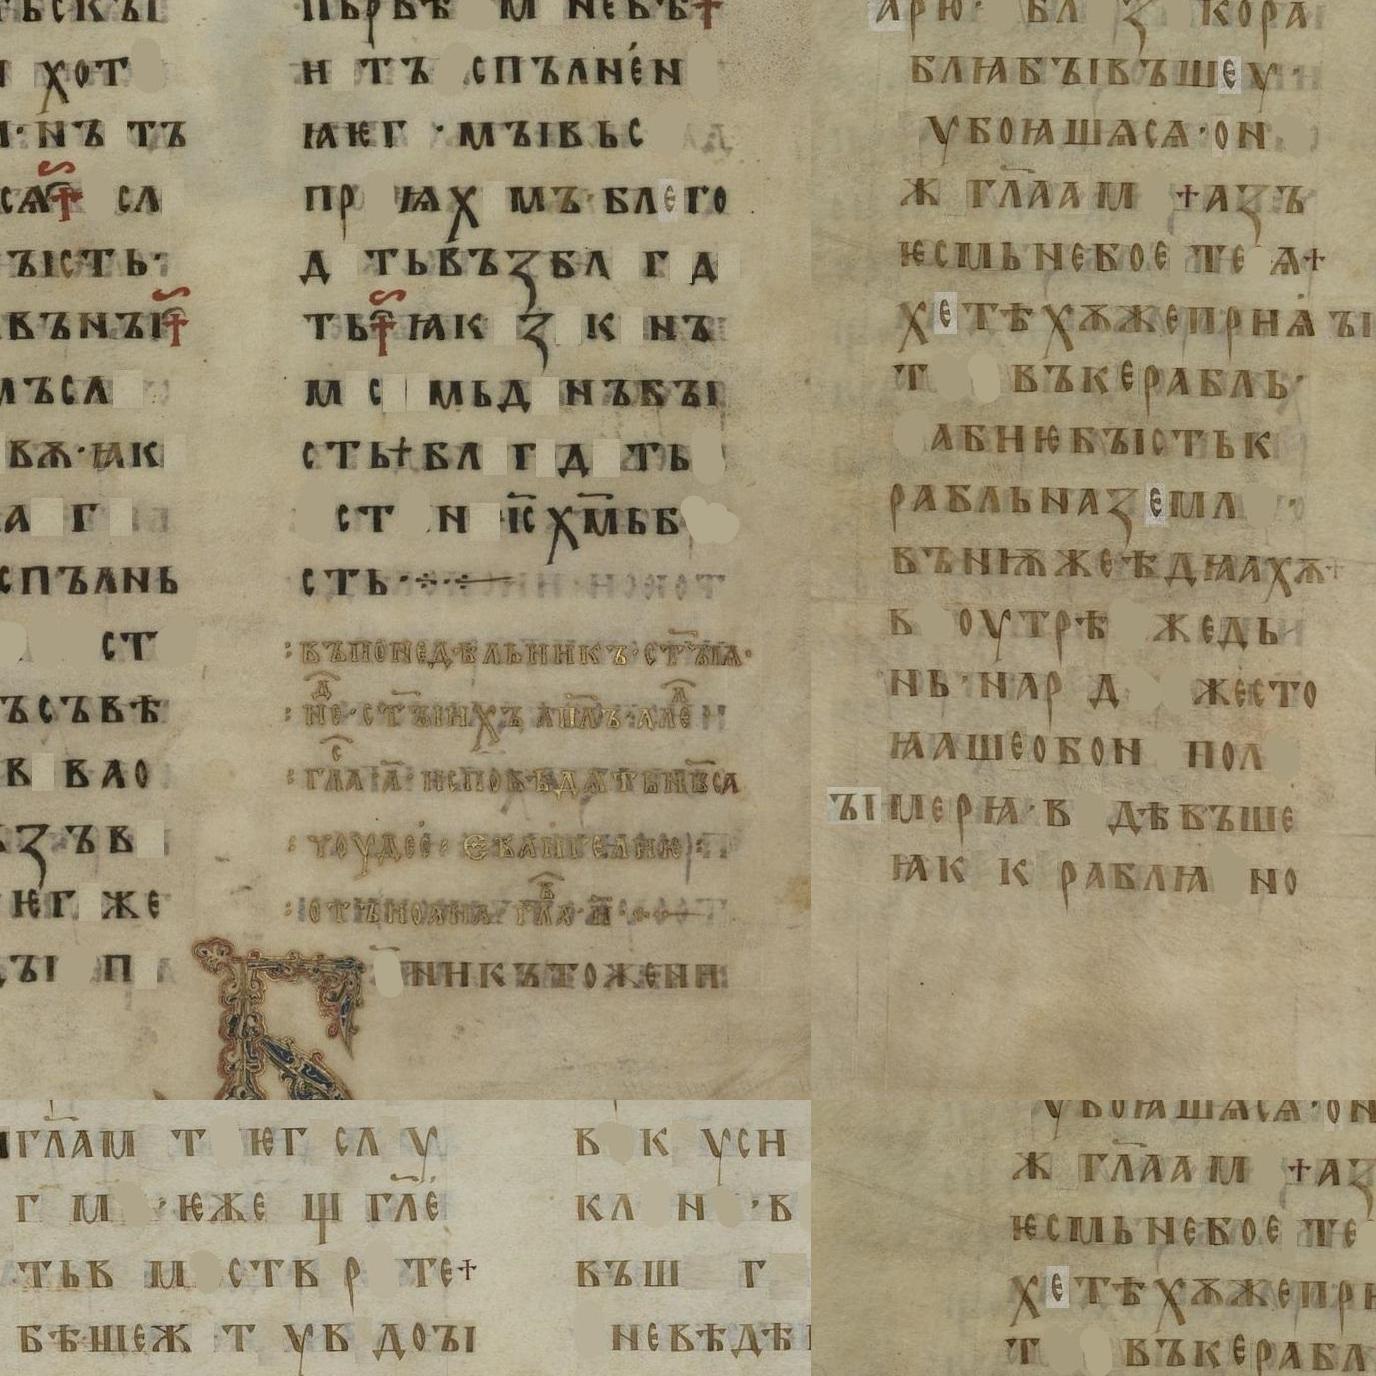 ьскъі
хот
нъ тъ
сѧ† сл
ъість·
вънъі†
мъсл
вѫ·ꙗк
а г
спълнь
ст
ъсъвѣ
в вао
ꙁъв
ѥг же
ъі п
пьрвѣ м невѣ†
н тъ спълнен
ꙗѥг · мъівьс
пр ꙗх мъ·блего
д тьвъꙁбл г д
ть† ꙗк ꙁ к нъ
м с мьд нъбъі
сть†бл г д ть
ст н іс҃ хм҃ьб
сть·
въпонедѣльникъ·ст҃ъіѧ·
не·ст҃ъіихъ ап҃лъ·але
гл҃а а҃ исповѣдатьнвса
тоудее· евангелию
отъиоана гл҃а н҃
никътожени
арю· бл ꙁ кора
блꙗбъівъшеу·
убоꙗшѧсѧ·он
ж гл҃аам †аꙁъ
ѥсмьнебое те ѧ†
хетѣхѫжеприꙗ ъі
т въкерабль·
абиюбъістьк
рабльнаꙁемл
въниѭжеѣдꙗахѫ†
в оутрѣ жедь
нь·нар д жесто
ꙗашеобон пол
ъімерꙗ·в дѣвъше
ꙗк к раблꙗ но
гл҃ам т ѥг сл у
г м ·ѥже щ гл҃е
тьв м ств р те†
бѣшеж т ув доъі
в к усн
кл н ·в
въш г
невѣдѣ
убоꙗшѧсѧ·он
ж гл҃аам †аꙁ
ѥсмьнебое те
хетѣхѫжепри
т въкерабл